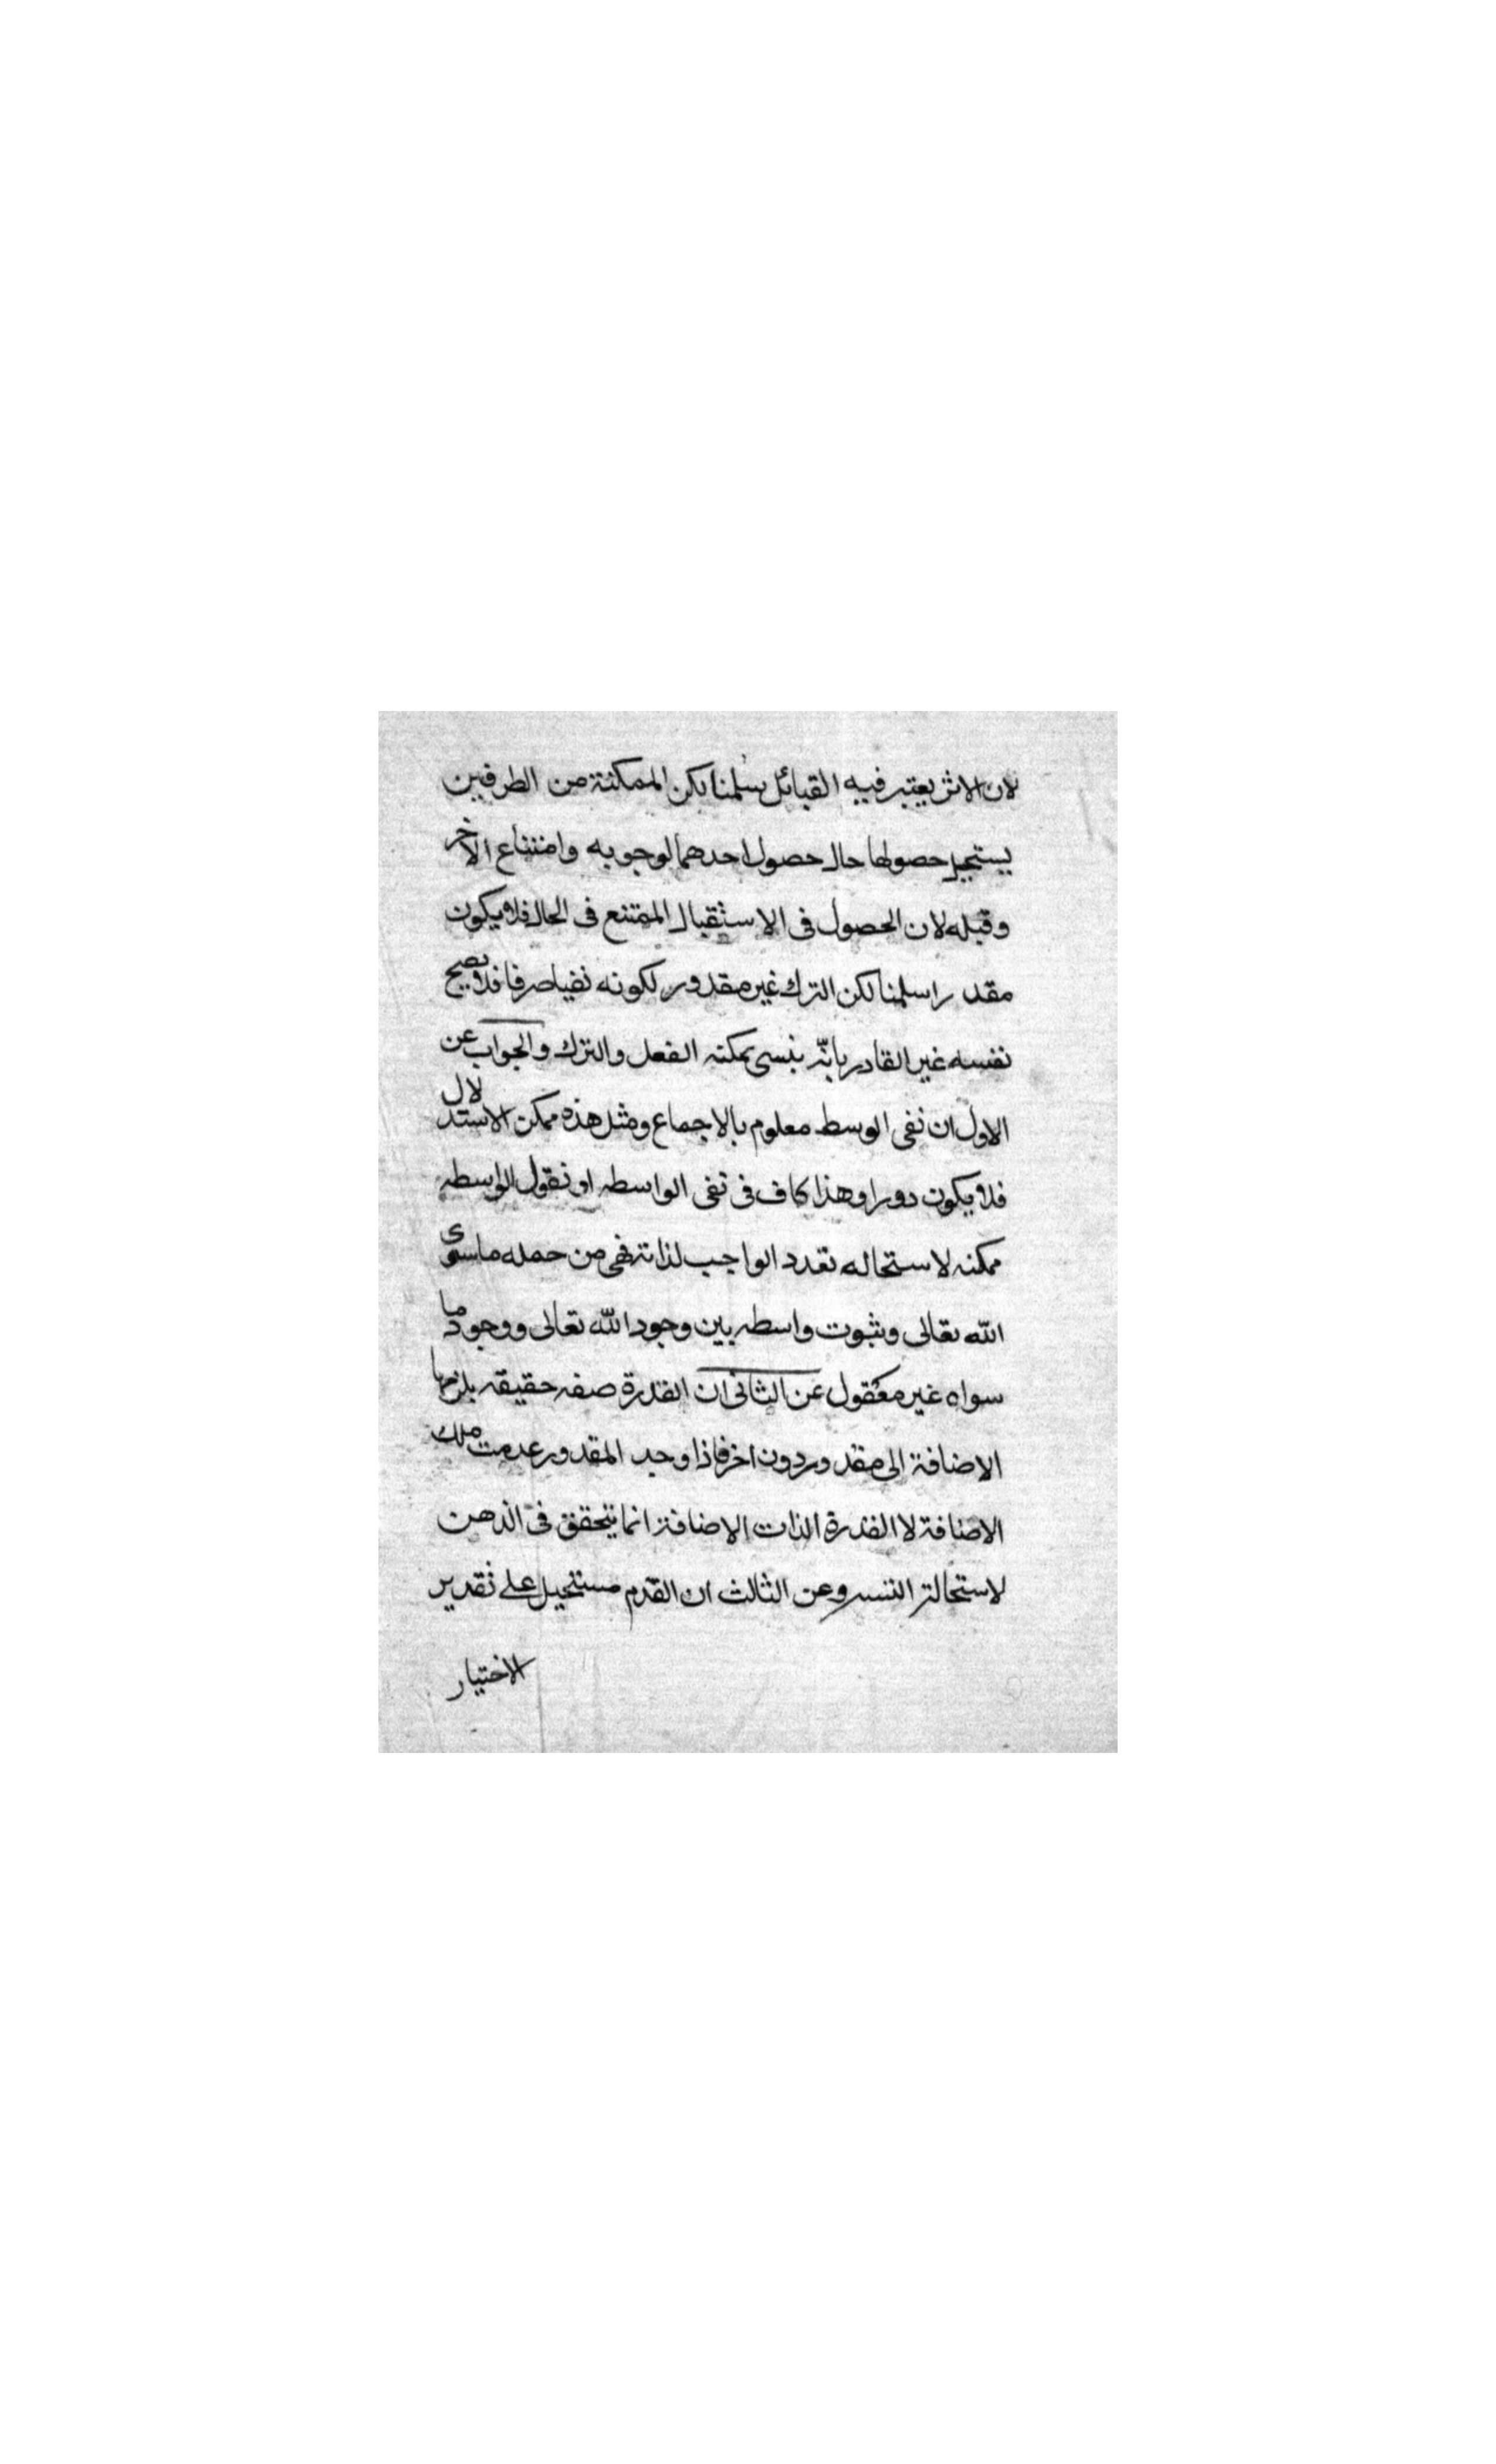 لان الاثر يعتبر فيه القبائل سلمنا لكن الممكنة من الطرفين
يستحيل حصولها حال حصول احدهما لوجوبه وامتناع الآخر
وقبله لان الحصول في الاستقبال الممتنع في الحال فلا يكون
مقدرا سلمنا لكن الترك غير مقدور لكونه نفيا صرفا فلا يصح
نفسه غير القادر بانّه يمكنه الفعل والترك والجواب عن
الاول ان نفى الوسط معلوم بالاجماع ومثل هذه ممكن الاستدلال
فلا يكون دورا وهذا كاف فى نفى الواسطه او نقول الواسطه
ممكنه لاستحاله تعدد الواجب لذاته فهى من حمله ما سوى
الله تعالى وثبوت واسطه بين وجود الله تعالى ووجود ما
سواه غير معقول عن الثانى ان القدرة صفه حقيقه يلزمها
الاضافة الى مقدور دون اخر فاذا وجد المقدور عدمت تلك
الاضافة لا القدرة الذات الاضافة انما يتحقق فى الذهن
لاستحالة التسـ وعن الثالث ان القدم مستحيل على تقدير
الاختيار